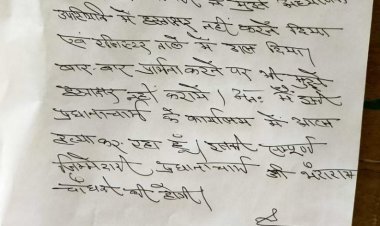 उपस्थिति में हस्ताक्षर नहीं करने दिया
एवं रजिस्टर ताले में डाल दिया।
बार बार प्रार्थना करने पर भी मुझे
हस्ताक्षर नहीं कराये। अतः मैं
प्रधानाचार्य के कार्यालय में आत्म
हत्या कर रहा हूँ। इसकी सम्पूर्ण
जिम्मेदारी प्रधानाचार्य श्री भैराराम
चौधरी की होगी।